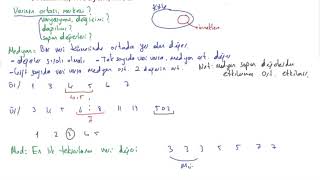 Verinin ortası, merkezi?
yayılımı, değişimi?
dağılımı?
aşırı değerleri?
kitle
örneklem
Medyan: Bir veri kümesinde ortada yer alan değer.
- değerler sıralı olmalı. - Tek sayıda veri varsa, medyan ort. değer
- Çift sayıda veri varsa medyan ort. 2 değerin ort.
Not: medyan aşırı değerlerden etkilenmez. Ort. etkilenir.
1 2 3 4 5 6 7
4.5
1 3 4 5 6 8 11 13 502
7
1 2 3 4 5
Mod: En sık tekrarlanan veri değeri.
3 3 3 5 5 7 7
Mod